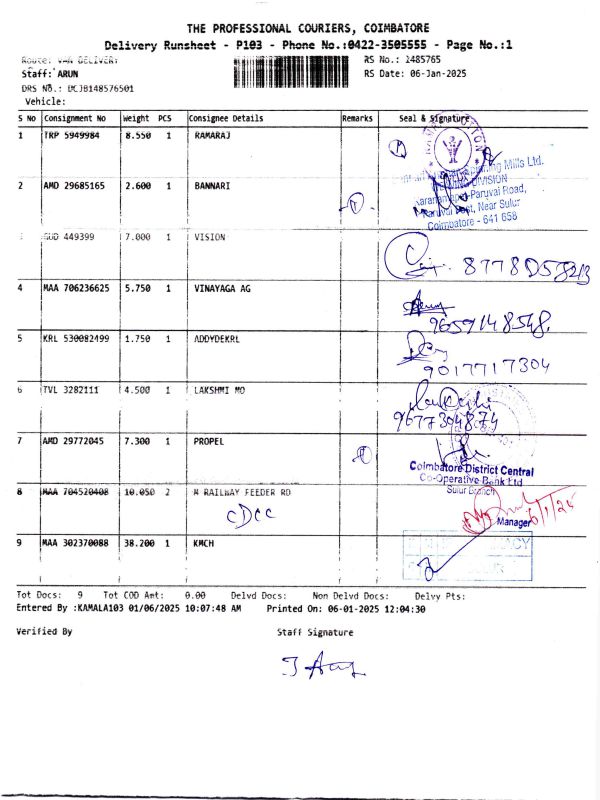 THE PROFESSIONAL COURIERS, COIMBATORE
Delivery Runsheet - P103 - Phone No.:0422-3505555 - Page No.:1
Route: VAN DELIVERY
RS No.: 1485765
Staff: ARUN
RS Date: 06-Jan-2025
DRS No.: DCJB148576501
Vehicle:
S No Consignment No Weight PCS Consignee Details Remarks Seal & Signature
1 TRP 5949984 8.550 1 RAMARAJ
2 AMD 29685165 2.600 1 BANNARI
Spinning Mills Ltd.
DIVISION
Paruvai Road,
Near Sulur
Coimbatore - 641 658
449399 7.000 1 VISION
4 MAA 706236625 5.750 1 VINAYAGA AG
9659148548
5 KRL 530082499 1.750 1 ADDYDEKRL
9017717304
6 TVL 3282111 4.500 1 LAKSHMI MO
9677304874
7 AMD 29772045 7.300 1 PROPEL
Coimbatore District Central
Co-Operative Bank Ltd
Sulur Branch
8 MAA 704520408 10.050 2 M RAILWAY FEEDER RD
CDCC
Manager
9 MAA 302370088 38.200 1 KMCH
Tot Docs: 9 Tot COD Amt: 0.00 Delvd Docs: Non Delvd Docs: Delvy Pts:
Entered By :KAMALA103 01/06/2025 10:07:48 AM Printed On: 06-01-2025 12:04:30
Verified By Staff Signature